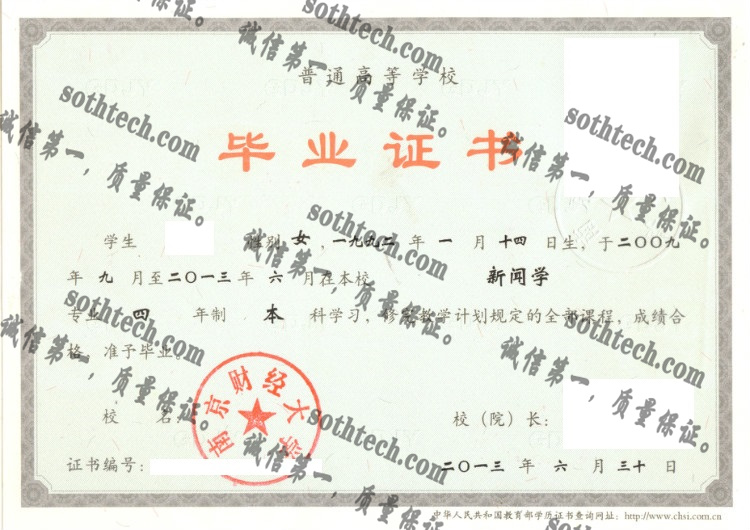 普通高等学校
毕业证书
学生 性别 女 ，一九九二 年 一 月 十四 日生，于二〇〇九
年 九 月至二〇一三年 六 月在本校 新闻学
专业 四 年制 本 科学习，修完教学计划规定的全部课程，成绩合
格，准予毕业。
南京财经大学
校 名： 校（院）长：
证书编号： 二〇一三 年 六 月 三十 日
中华人民共和国教育部学历证书查询网址：http://www.chsi.com.cn
sothtech.com
诚信第一，质量保证。
sothtech.com
诚信第一，质量保证。
sothtech.com
诚信第一，质量保证。
sothtech.com
诚信第一，质量保证。
sothtech.com
诚信第一，质量保证。
sothtech.com
诚信第一，质量保证。
sothtech.com
诚信第一，质量保证。
sothtech.com
诚信第一，质量保证。
sothtech.com